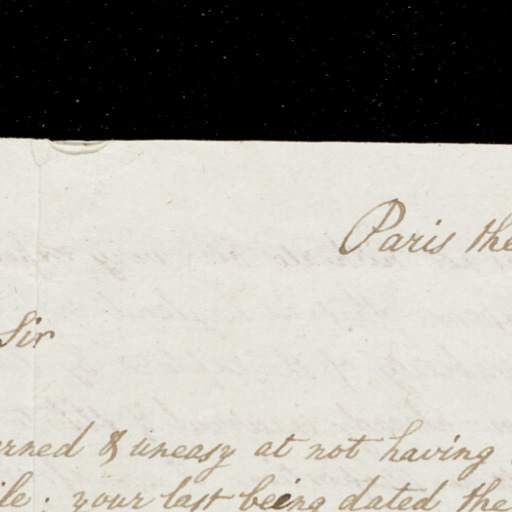 Paris the
Sir
erned & uneasy at not having
ile; your last being dated the